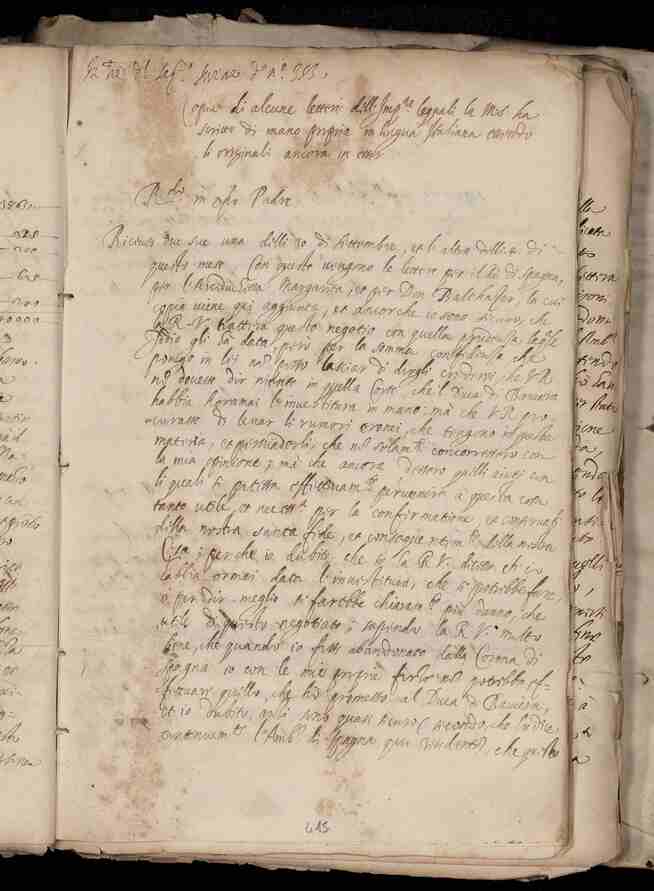 Copia di alcune lettere dell'Imp.re le quali la M.tà ha
scritto di mano propria in lingua Italiana essendo
li originali ancora in
R.do in Padre
Ricevei due sue una delli 20 di settembre, et l'altra delli 4 di
questo mese. Con questo vengono le lettere per il Rè di Spagna,
per l'Arciduchessa Margarita, et per Don Balthasar, la cui
copia viene qui aggiunta, et ancorche io sono sicuro, che
la R.V. tratterà questo negotio con quella prudenza la quale
Iddio gli ha data, però per la somma confidenza che
pongo in lei nō posso lasciar di dirgli che V.R.
nō dovesse dir niente in quella Corte, che il Duca di Baviera
habbia hormai l'investitura in mano, mà che V.R. pro-
curasse di levar li rumori che tengono in questa
materia, et che nō solam.te concorressero con
la mia opinione, mà che ancora dessero quelli aiuti con
li quali si potessa effettuam.te pervenire a questa cosa
tanto utile, et necess.ria per la confirmatione, et
della nostra santa fede, et conseguentem.te della nostra
Casa; perche io dubito, che se la R.V. dicesse ch'io
habbia ormai data l'investitura, che si potrebbe fare,
o per dir meglio si farebbe chiaram.te più danno, che
utile di questo negotiato; sapendo la R.V. molto
bene, che quando io fussi abandonato dalla Corona di
Spagna io con le mie proprie forze nō potrebbe ef-
fettuare quello, che hò promesso al Duca di Baviera,
et io dubito, anzi sono quasi sicuro
continuam.te l'Amb.re di Spagna qui che questo
215